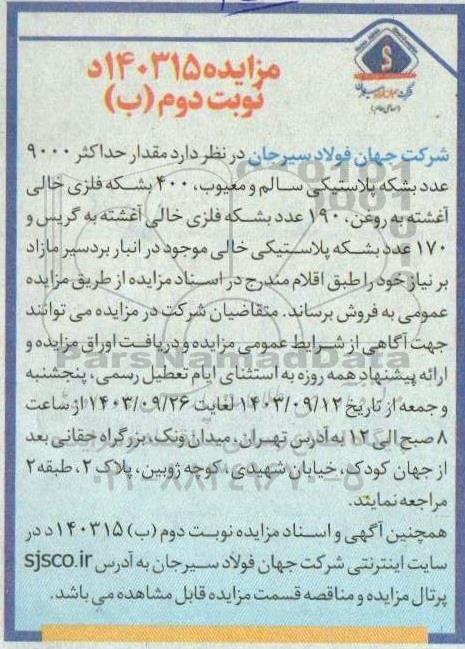 مزایده ۱۴۰۳۱۵د
نوبت دوم (ب)
شرکت جهان فولاد سیرجان
(سهامی عام)
شرکت جهان فولاد سیرجان در نظر دارد مقدار حداکثر ۹۰۰۰
عدد بشکه پلاستیکی سالم و معیوب، ۴۰۰ بشکه فلزی خالی
آغشته به روغن، ۱۹۰ عدد بشکه فلزی خالی آغشته به گریس و
۱۷۰ عدد بشکه پلاستیکی خالی موجود در انبار بردسیر مازاد
بر نیاز خود را طبق اقلام مندرج در اسناد مزایده از طریق مزایده
عمومی به فروش برساند. متقاضیان شرکت در مزایده می توانند
جهت آگاهی از شرایط عمومی مزایده و دریافت اوراق مزایده و
ارائه پیشنهاد همه روزه به استثنای ایام تعطیل رسمی، پنجشنبه
و جمعه از تاریخ ۱۴۰۳/۰۹/۱۲ لغایت ۱۴۰۳/۰۹/۲۶ از ساعت
۸ صبح الی ۱۲ به آدرس تهران، میدان ونک، بزرگراه حقانی بعد
از جهان کودک، خیابان شهیدی، کوچه ژوبین، پلاک ۲، طبقه ۲
مراجعه نمایند.
همچنین آگهی و اسناد مزایده نوبت دوم (ب) ۱۴۰۳۱۵د در
سایت اینترنتی شرکت جهان فولاد سیرجان به آدرس sjsco.ir
پرتال مزایده و مناقصه قسمت مزایده قابل مشاهده می باشد.
ParsNamadData
۰۲۱-۸۸۳۴۹۶۷۰-۵